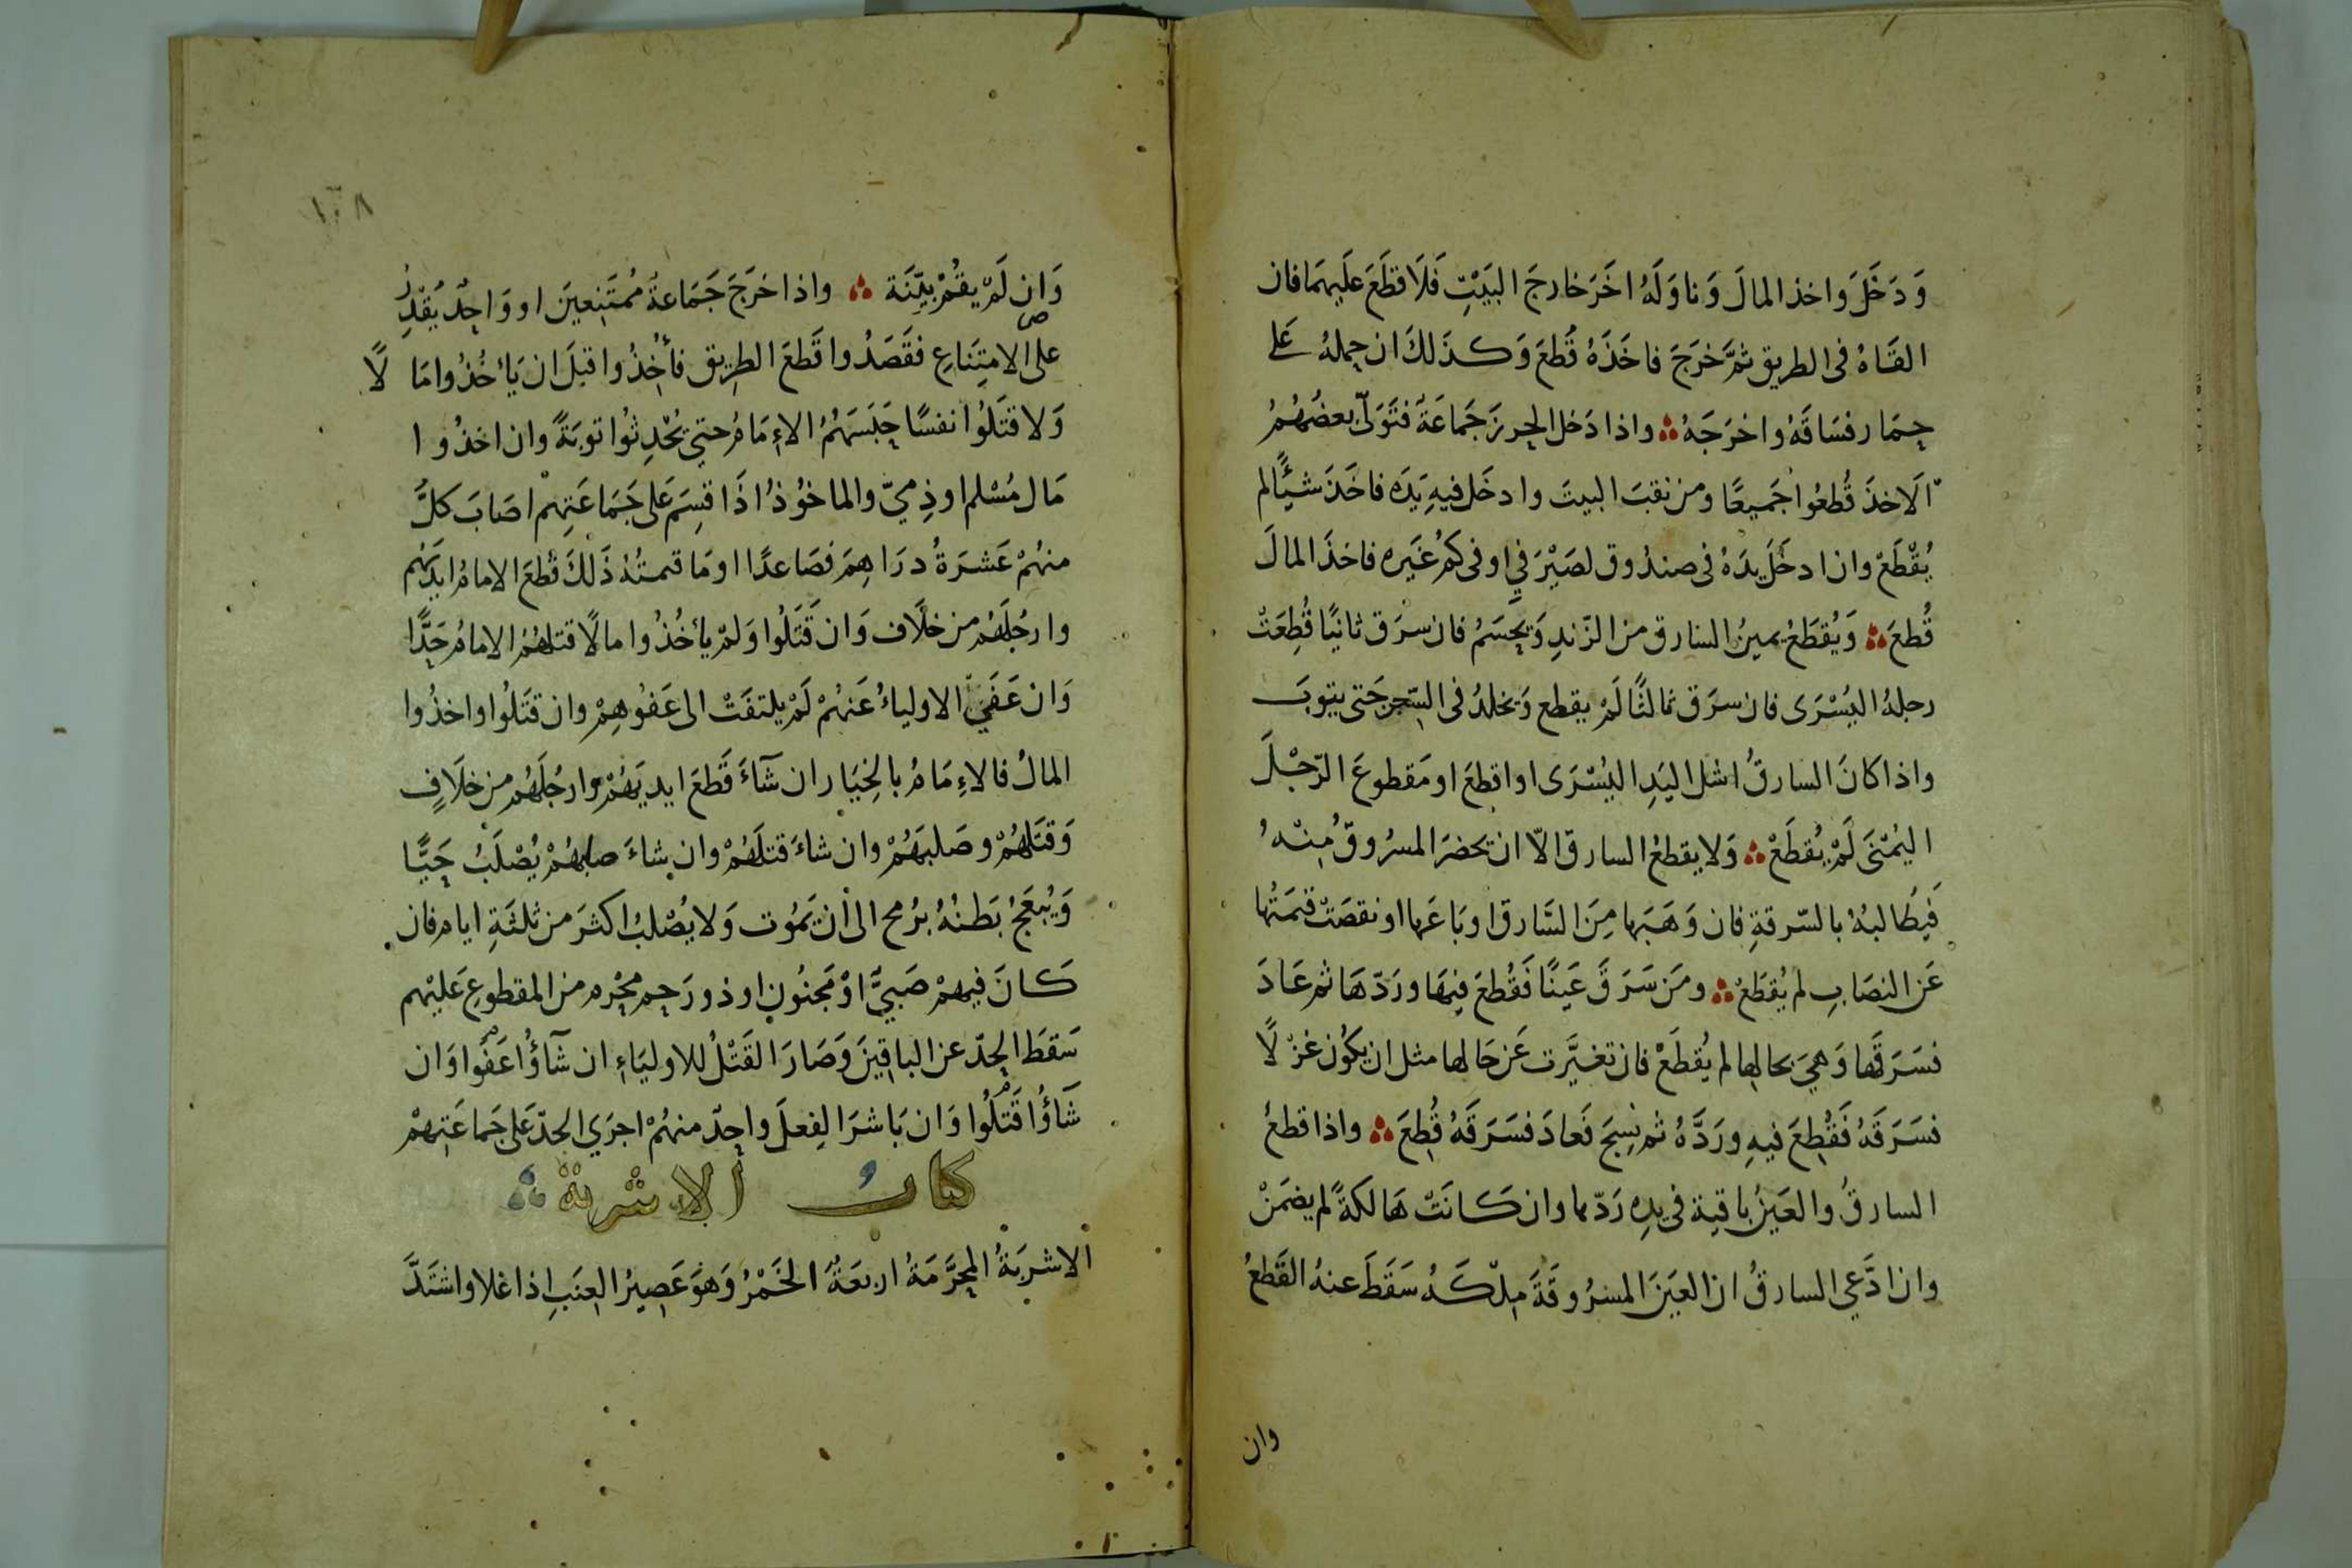 وَدَخَلَ واخذ المالَ وَناوَلَهُ اخَرَ خارجَ البَيْتِ فَلَا قطَعَ عَلَيهمَا فان
القَاهُ فى الطريق ثمَّ خرَجَ فاخَذَهُ قُطعَ وَكذَلكَ ان حملهُ عَلى
حِمَار فسَاقَهُ واخرَجَهُ واذا دَخل الحِرزَ جَمَاعَةٌ فتَوَلّى بعضُهُمُ
الَاخذَ قُطعُوا جَميعًا ومن نقبَ البيتَ وادخَل فيهِ يَدَه فاخَذَ شيئًا لم
يُقْطَعْ وان ادخَلَ يدَهُ فى صندُوق لصَيْرَفيٍ او فى كُمِّ غَيَره فاخذَ المالَ
قُطعَ وَيُقطَعُ يمينُ السارق من الزّندِ وَيحسَمُ فان سرَق ثانيًا قُطِعَتْ
رجلهُ اليُسْرَى فان سرَق ثالثًا لَمْ يقطع وَيخلدُ فى السّجن حَتى يتوبَ
واذا كانَ السارقُ اشل اليَدِ اليُسْرَى او اقطعَ او مَقطوعَ الرّجْلَ
اليُمْنَى لَمْ يُقطَعْ وَلا يقطعُ السارق الّا ان يَحضرَ المسرُوقُ مِنْهُ
فيُطالبهُ بالسّرقةِ فان وَهَبَها مِنَ السَّارق او بَاعَها او نقصَتْ قيمَتُها
عَن النصَابِ لم يُقطَعْ ومَن سَرَقَ عَينًا فَقُطعَ فيهَا وردّهَا ثم عَادَ
فسَرَقَها وَهيَ بحالِها لم يُقطَعْ فان تغيَّرت عَن حَالها مثل ان يكوُن غزلًا
فسَرَقَهُ فَقُطِعَ فيهِ ورَدَّهُ ثم نُسِجَ فَعادَ فسَرَقَهُ قُطِعَ واذا قطعُ
السارقُ والعَينُ باقية فى يدِه رَدّها وان كَانَتْ هَالكةً لم يضمَنْ
وان ادَّعي السارقُ ان العَينَ المسرُوقَةَ مِلْكَهُ سَقَطَ عنهُ القَطعُ
وان
١٠٨
وَان لَمْ يقُمْ بيِّنَة واذا خرَجَ جَمَاعةٌ مُمتَنِعينَ او وَاحِدٌ يُقدِرُ
على الامتِنَاعِ فقَصَدُوا قَطعَ الطريق فأخِذُوا قبلَ ان يَأخُذُوا مَالًا
وَلا قتَلُوا نفسًا حَبَسَهُمُ الاءمَامُ حتي يُحْدِثُوا توبَةً وان اخذُوا
مَال مُسْلم او ذِميّ والماخوُذُ اذَا قسِمَ عَلى جَمَاعَتِهمْ اصَابَ كلَّ
منهُمْ عَشرَةُ درَاهِمَ فصَاعدًا او مَا قمتُهُ ذَلكَ قُطعَ الامامُ ايديَهُم
وارجُلَهُم من خلَاف وَان قَتَلُوا وَلمْ يأخُذُوا مالًا قتلهُمُ الامامُ حَدًّا
وَان عَفَيَ الاولياءُ عَنهُمْ لَمْ يلتفَتْ الى عَفوُهِمْ وان قتَلُوا واخذُوا
المالُ فالاءِمَامُ بالخِيَار ان شآءَ قَطعَ ايديَهُمْ وارجُلَهُم من خلَافٍ
وَقتَلهُمْ وصَلبَهُمْ وان شاءَ قتلَهُمْ وان شاءَ صلبهُمْ يُصْلَبُ حَيًّا
وَيُبعَجُ بَطنُهُ برُمح الى أن يَموُت وَلا يُصْلبُ اكثرَ من ثلثَةِ ايام فان
كَانَ فيهمْ صَبيٌّ اوْ مَجنُونٍ او ذورَحِم مُحْرم من المقطوعِ عَليْهم
سَقطَ الحدّ عن الباقِينَ وَصَارَ القَتْلُ للاوليَاءِ ان شآؤُا عَفَوا وَان
شَآؤُا قَتَلُوا وَان بَاشرَ الفِعلَ واحِدٌ منهُمْ اجرَي الحدّ عَلى جَماعَتِهمْ
كتابُ الاشربة
الاشربَةُ المحَرَّمَةُ اربعَةٌ الخَمْرُ وَهوَ عَصِيرُ العِنَبِ اذا غلا واشتَدَّ